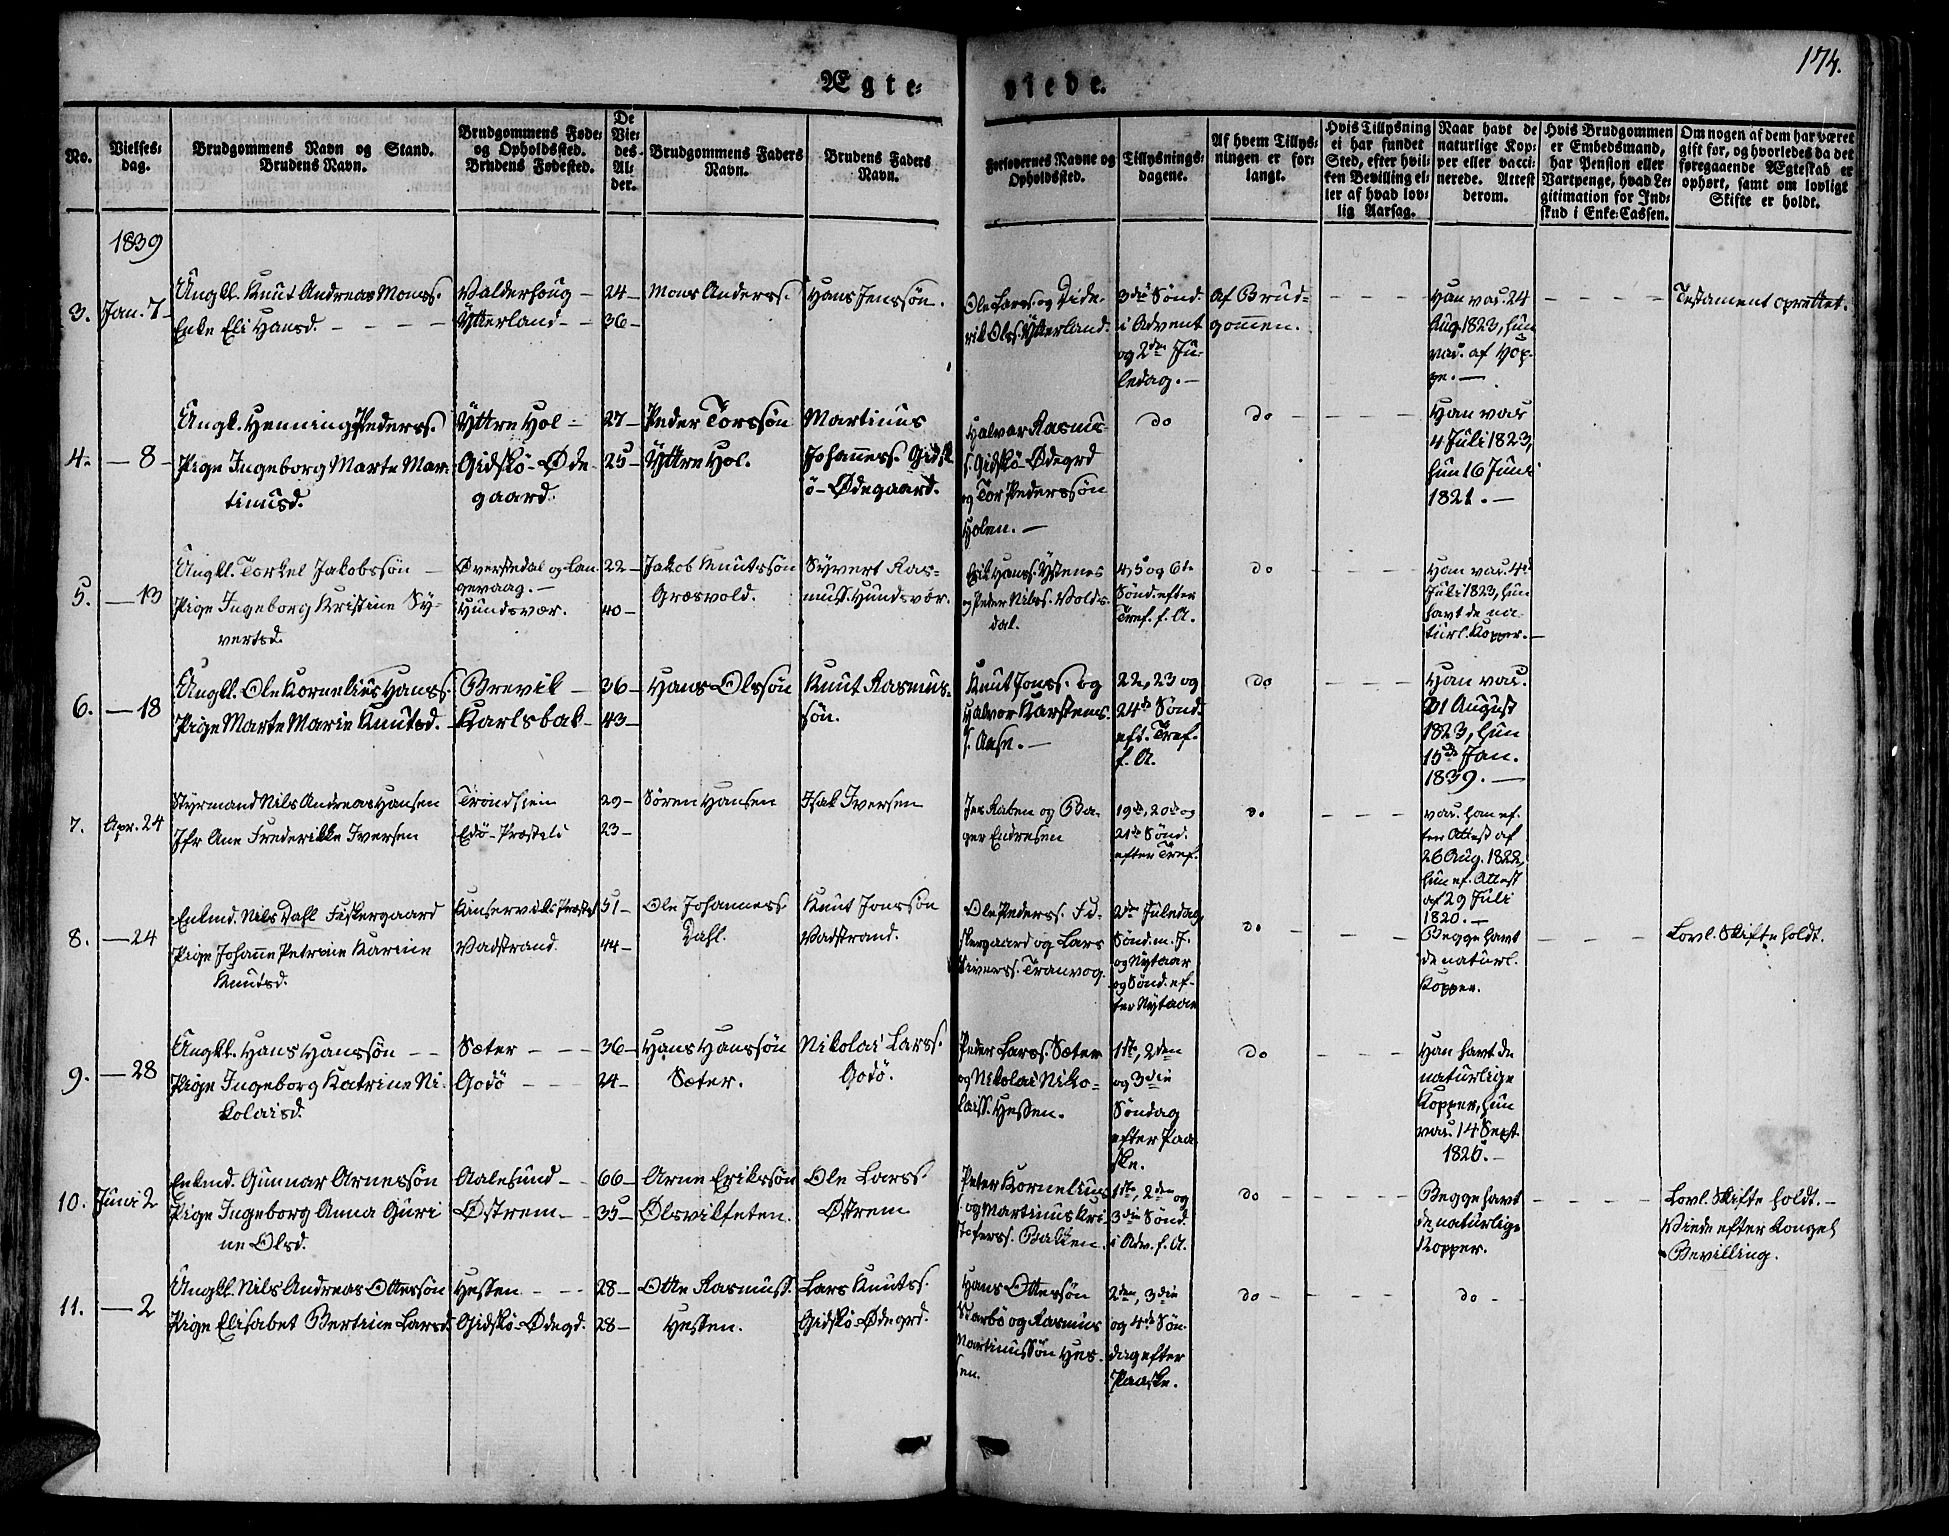 174.
Ægte-
viede.
No.
Vielses-
dag.
Brudgommens Navn og Stand.
Brudens Navn.
Brudgommens Føde-
og Opholdssted.
Brudens Fødested.
De
Vie-
des
Al-
der.
Brudgommens Faders
Navn.
Brudens Faders
Navn.
Forlovernes Navne og
Opholdsted.
Tillysnings-
dagene.
Af hvem Tillys-
ningen er for-
langt.
Hvis Tillysning
ei har fundet
Sted, efter hvil-
ken Bevilling el-
ler af hvad lov-
lig Aarsag.
Naar havt de
naturlige Kop-
per eller vacci-
nerede. Attest
derom.
Hvis Brudgommen
er Embedsmand,
har Pension eller
Vartpenge, hvad Le-
gitimation for Ind-
skud i Enke-Cassen.
Om nogen af dem har været
gift før, og hvorledes da det
foregaaende Ægteskab er
ophørt, samt om lovligt
Skifte er holdt.
1839
3. Jan. 7
Ungkl. Knut Andreas Monss.
Enke Eli Hansd.
Valderhoug
Ytterland
24
36
Mons Anderss.
Hans Jenssøn.
Ole Larss. og Dide-
rik Olss. Ytterland.
3die Sønd.
i Advent
og 2den Ju-
ledag.
Af Brud-
gommen.
Han vac. 24
Aug. 1823, hun
vac. af Hop-
pe.
Testament oprettet.
4. — 8
Ungk. Henning Pederss.
Pige Ingeborg Marte Mar-
tinusd.
Yttre Hol
Gidskø-Øde-
gaard.
27
25
Peder Torssøn
Yttre Hol.
Martinus
Johanness. Gidsk-
ø-Ødegaard.
Halvar Rasmus-
s. Gidskø-Ødegrd
og Tor Pederssøn
Holen.
do
do
Han vac
4 Juli 1823,
hun 16 Juni
1821.
5. — 13
Ungkl. Torkel Jakobssøn
Pige Ingeborg Kristine Sy-
vertsd.
Øverstedal og Lan-
gevaag.
Hundsvær.
22
40
Jakob Knutssøn
Græsvold.
Syvert Ras-
muss. Hundsvær.
Erik Hanss. Ystenes
og Peder Nilss. Volds-
dal.
4, 5 og 6te
Sønd. efter
Tref. f. A.
do
Han vac. 4de
Juli 1823, hun
havt de na-
turl. Kopper.
6. — 18
Ungkl. Ole Kornelius Hanss.
Pige Marte Marie Knutsd.
Brevik
Karlsbak
36
43
Hans Olssøn
Knut Rasmus-
søn.
Knut Jonss. og
Halvor Karstens-
s. Aase.
22, 23 og
24de Sønd.
eft. Tref.
f. A.
do
Han vac.
21 August
1823, hun
15de Jan.
1839.
7. Apr. 24
Styrmand Nils Andreas Hansen
Jfr Ane Frederikke Iversen
Trondhiem
Edø-Præsteli
29
23
Søren Hansen
Isak Iversen
Jes Raben og Ba-
ger Endresen
19de, 20de og
21de Sønd.
efter Tref.
do
vac. han ef-
ter Attest af
26 Aug. 1822,
hun ef. Attest
af 29 Juli
1820.
8. — 24
Enkmd. Nils Dahl Fiskergaard
Pige Johanne Petrine Karine
Knutsd.
Kinserviks Præstel
Vadstrand.
51
44
Ole Johanness.
Dahl.
Knut Jonssøn
Vadstrand.
Ole Pederss. Fi-
skergaard og Lars
Sivers. Tranvog.
2den Juledag,
Sønd. m. J.
og Nytaar
og Sønd. ef-
ter Nytaar
do
Begge havt
de naturl.
Kopper.
Lovl. Skifte holdt.
9. — 28
Ungkl. Hans Hanssøn
Pige Ingeborg Katrine Ni-
kolaisd.
Sæter
Godø
36
24
Hans Hanssøn
Sæter.
Nikolai Larss.
Godø.
Peder Larss. Sæter
og Nikolai Niko-
laiss. Hessen.
1ste, 2den
og 3die
Søndag
efter Paa-
ske.
do
Han havt de
naturlige
Kopper, hun
vac. 14 Sept.
1826.
10. Juni 2
Enkmd. Gunnar Arnessøn
Pige Ingeborg Anna Guri-
ne Olsd.
Aalesund
Østrem
66
35
Arne Erikssøn
Ølsvikseten.
Ole Larss.
Østrem
Peter Kornelius
s. og Martinus Kri-
stofers. Bakken.
1ste, 2den og
3die Sønd.
i Adv. f. A.
do
Begge havt
de naturlige
Kopper.
Lovl. Skifte holdt.
Viede efter Kongel
Bevilling.
11. — 2
Ungkl. Nils Andreas Ottessøn
Pige Elisabet Bertine Larsd.
Hessen
Gidskø-Ødegd.
28
28
Otte Rasmuss.
Hessen.
Lars Knutss.
Gidskø-Ødegrd.
Hans Ottessøn
Skarbø og Rasmus
Martinussøn Hes-
sen.
2den, 3die
og 4de Søn-
dag efter
Paaske.
do
do